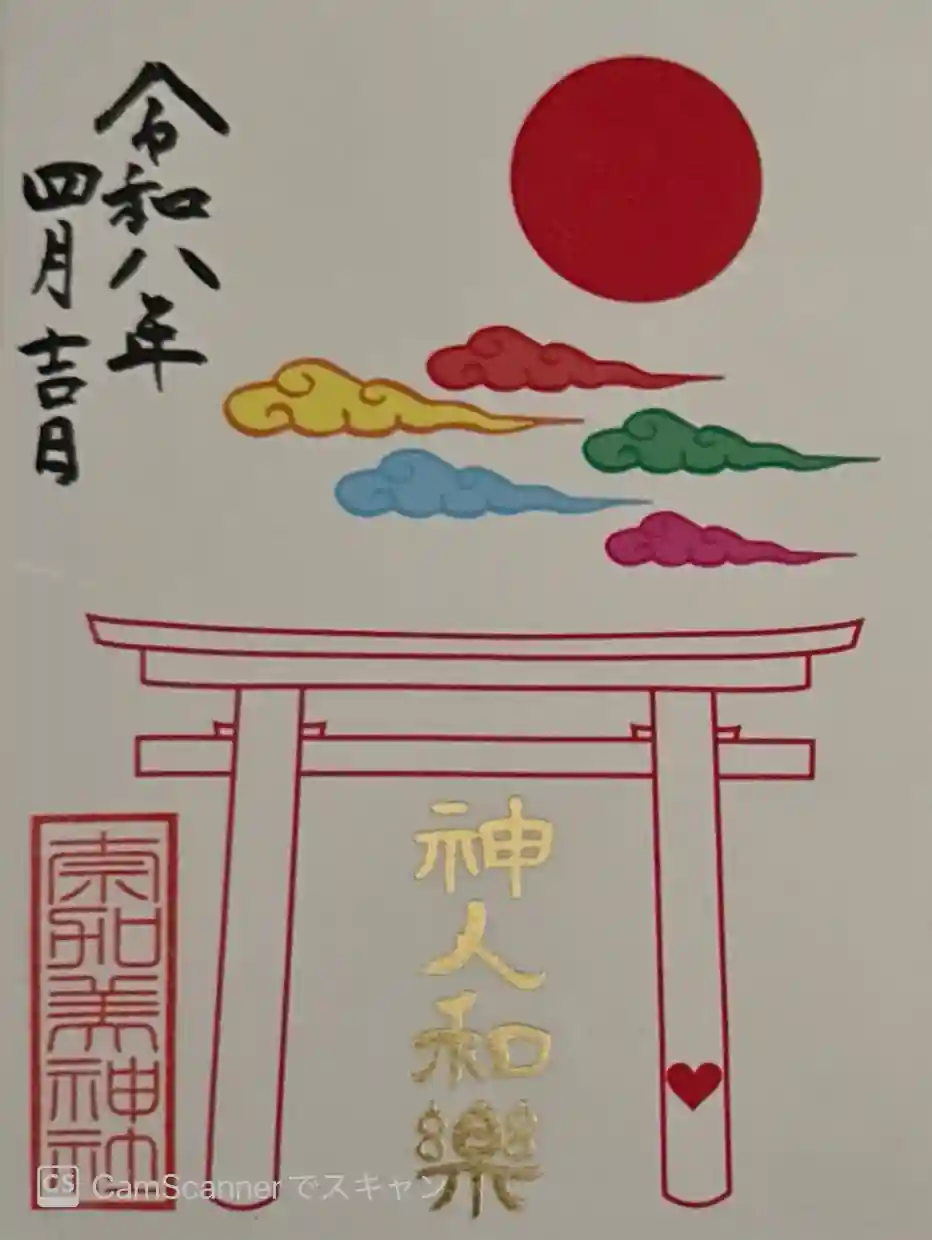 令和八年
四月吉日
神人和樂
CS CamScannerでスキャン